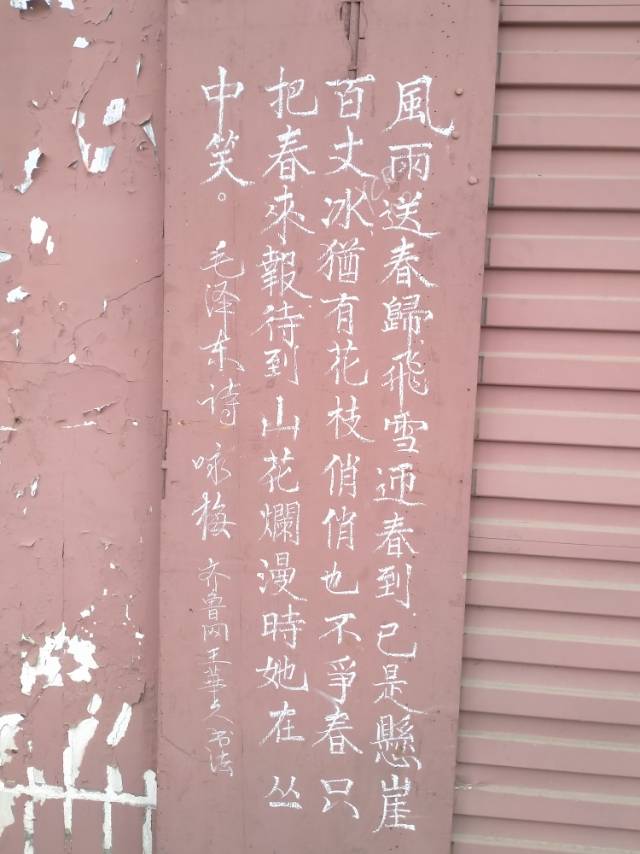 風雨送春歸飛雪迎春到已是懸崖
百丈冰猶有花枝俏俏也不爭春只
把春來報待到山花爛漫時她在丛
中笑。毛泽东诗 咏梅 齐鲁网王華人书法